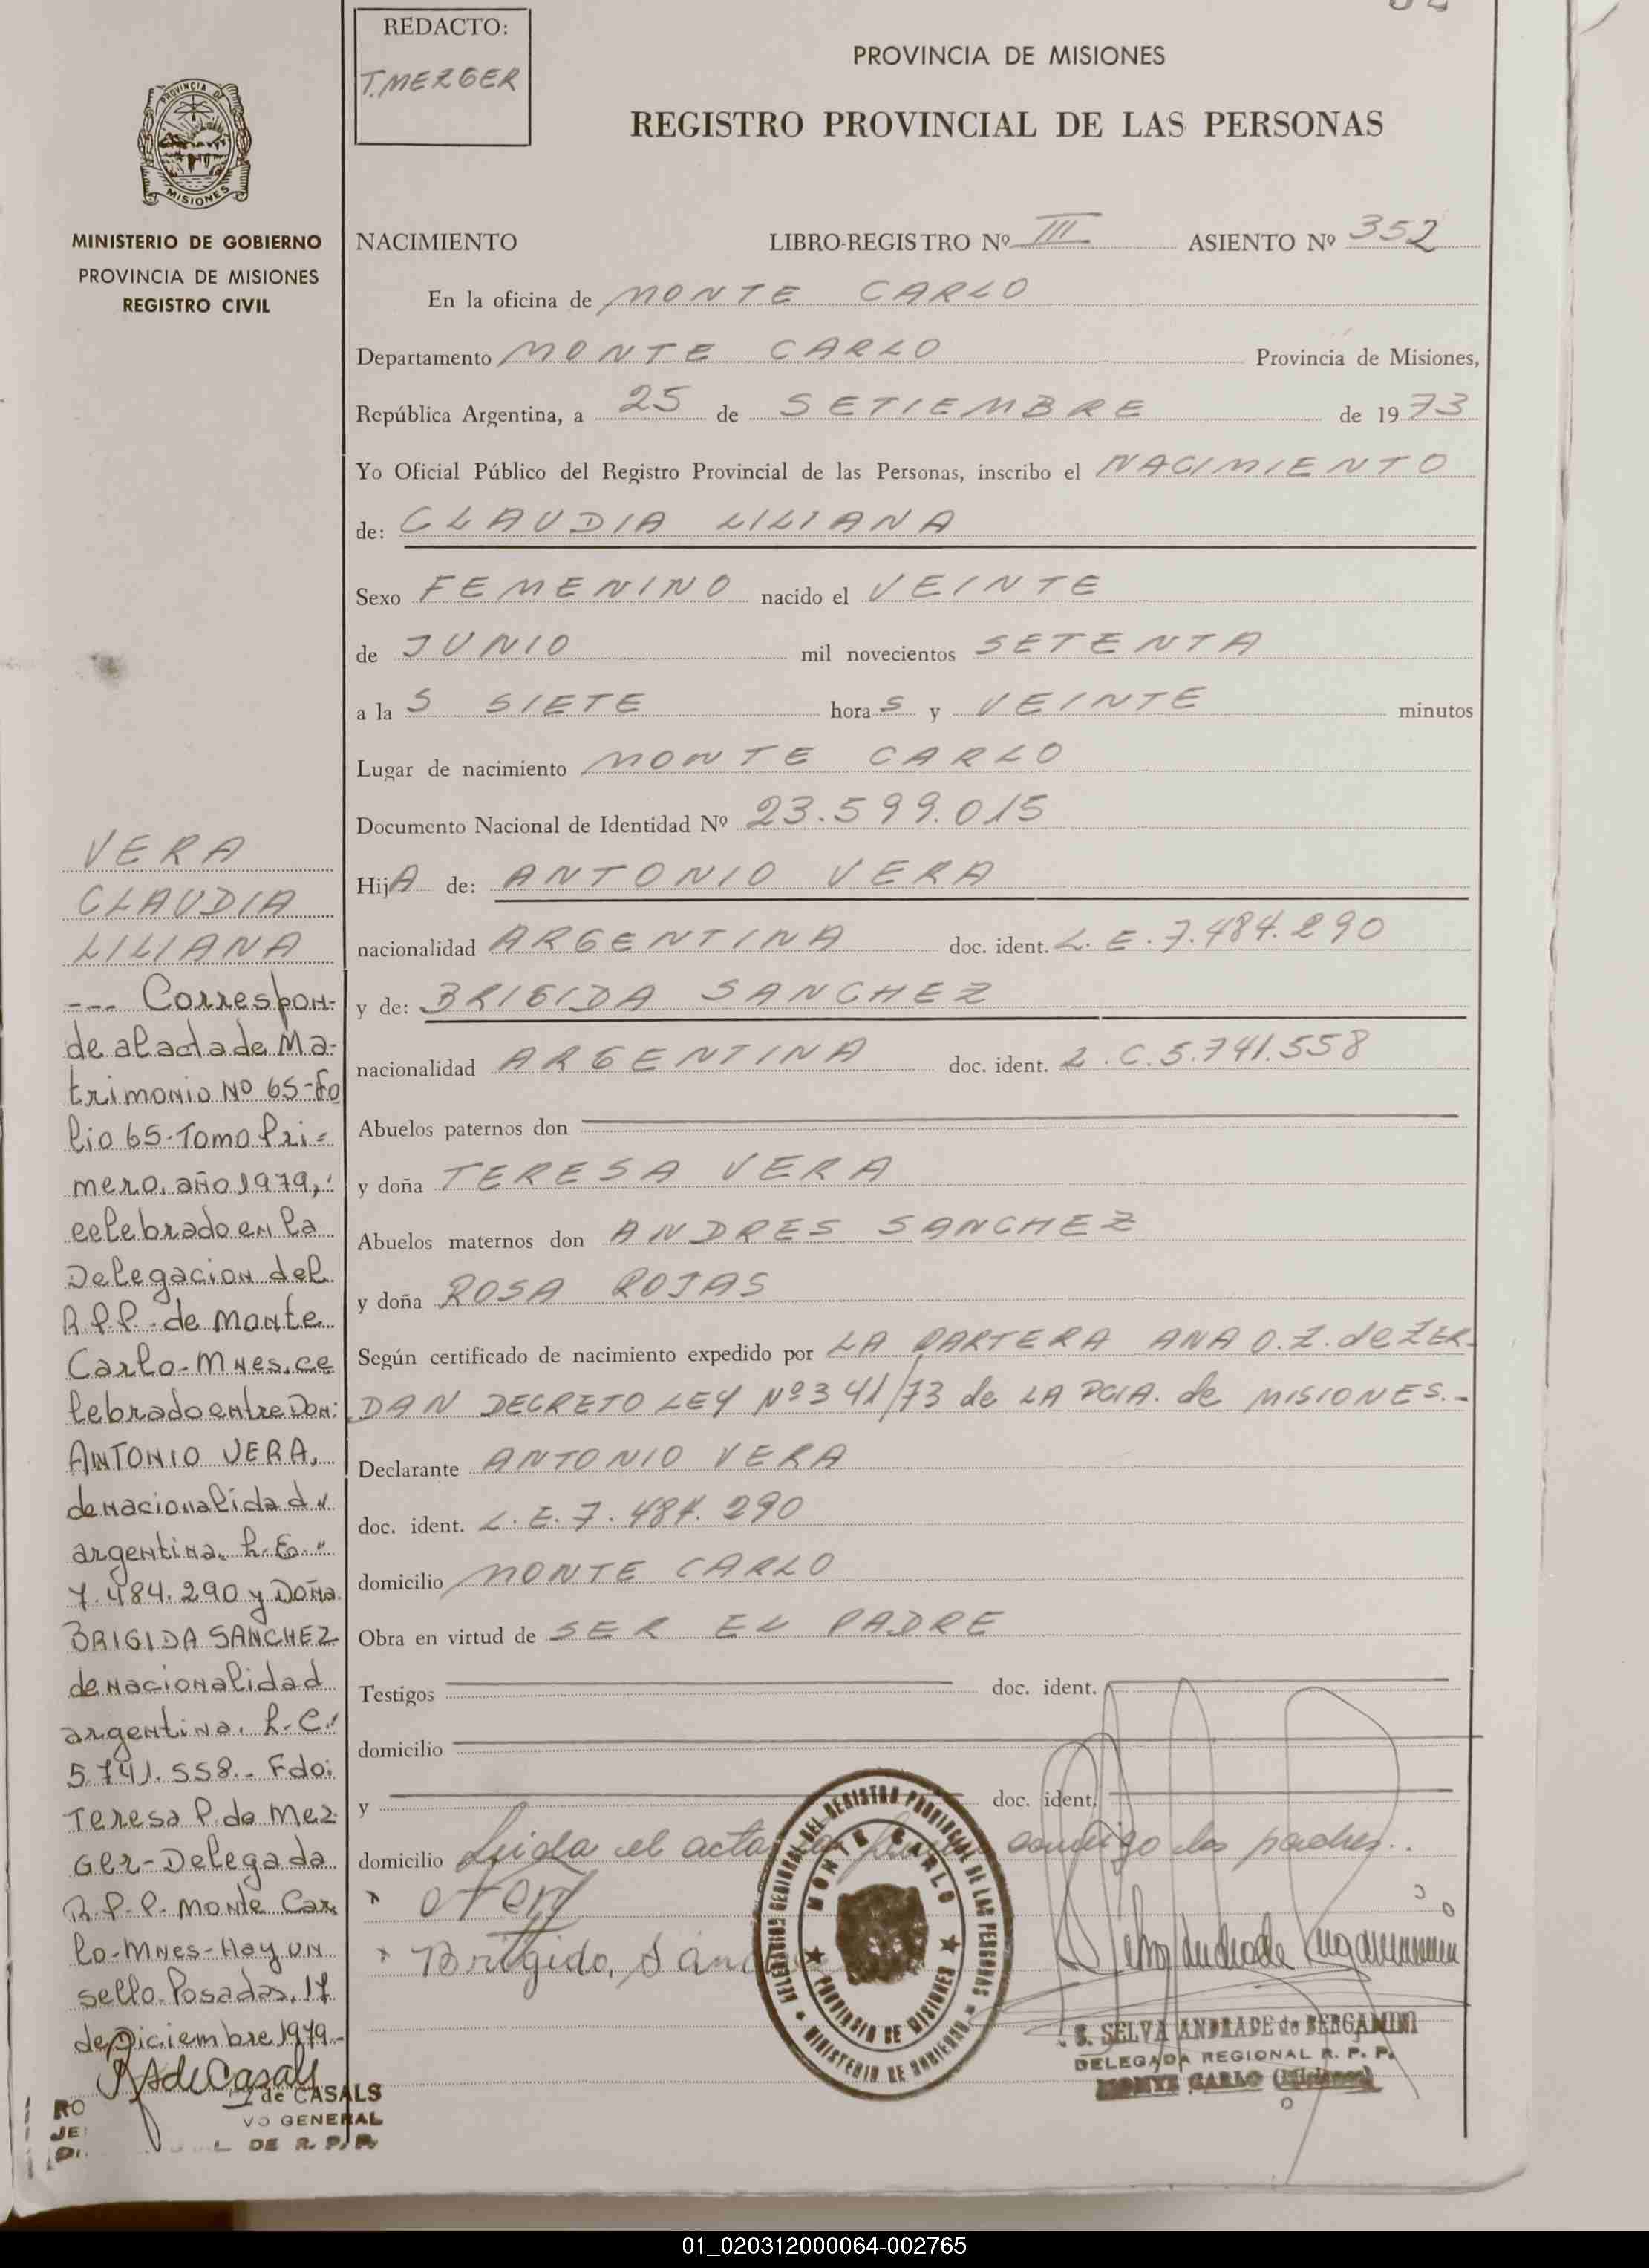 REDACTO:
T. MEZGER
PROVINCIA DE MISIONES
REGISTRO PROVINCIAL DE LAS PERSONAS
PROVINCIA DE
MISIONES
MINISTERIO DE GOBIERNO
PROVINCIA DE MISIONES
REGISTRO CIVIL
NACIMIENTO LIBRO-REGISTRO Nº III ASIENTO Nº 352
En la oficina de MONTE CARLO
Departamento MONTE CARLO Provincia de Misiones,
República Argentina, a 25 de SETIEMBRE de 1973
Yo Oficial Público del Registro Provincial de las Personas, inscribo el NACIMIENTO
de: CLAUDIA LILIANA
Sexo FEMENINO nacido el VEINTE
de JUNIO mil novecientos SETENTA
a la S SIETE hora S y VEINTE minutos
Lugar de nacimiento MONTE CARLO
Documento Nacional de Identidad Nº 23.599.015
HijA de: ANTONIO VERA
nacionalidad ARGENTINA doc. ident. L.E. 7.484.290
y de: BRIGIDA SANCHEZ
nacionalidad ARGENTINA doc. ident. L.C. 5.741.558
Abuelos paternos don
y doña TERESA VERA
Abuelos maternos don ANDRES SANCHEZ
y doña ROSA ROJAS
Según certificado de nacimiento expedido por LA PARTERA ANA O. Z. de ZER-
DAN DECRETO LEY Nº 341/73 de LA PCIA. de MISIONES.-
Declarante ANTONIO VERA
doc. ident. L.E. 7.484.290
domicilio MONTE CARLO
Obra en virtud de SER EL PADRE
Testigos doc. ident.
domicilio
y doc. ident.
domicilio Leida el acta conmigo los padres.
Brigido, Sanc
S. SELVA ANDRADE de BERGAMINI
DELEGADA REGIONAL R. P. P.
MONTE CARLO (Misiones)
DEL REGISTRO PROVINCIAL DE LAS PERSONAS
MINISTERIO DE GOBIERNO
MONTE CARLO
PROVINCIA DE MISIONES
VERA
CLAUDIA
LILIANA
--- Correspon-
de al acta de Ma-
trimonio Nº 65-Fo
lio 65-Tomo Pri-
mero, año 1979,
celebrado en la
Delegacion del
R.P.P. de Monte
Carlo-Mnes, ce
lebrado entre Don:
ANTONIO VERA,
de nacionalidad
argentina, L.E.
7.484.290 y Doña
BRIGIDA SANCHEZ
de nacionalidad
argentina, L.C.
5.741.558.- Fdo:
Teresa P. de Mez
ger-Delegada
R.P.P. Monte Car
lo-Mnes-Hay un
sello. Posadas, 17
de Diciembre 1979.-
de CASALS
VO GENERAL
L DE R. P. P.
01_020312000064-002765